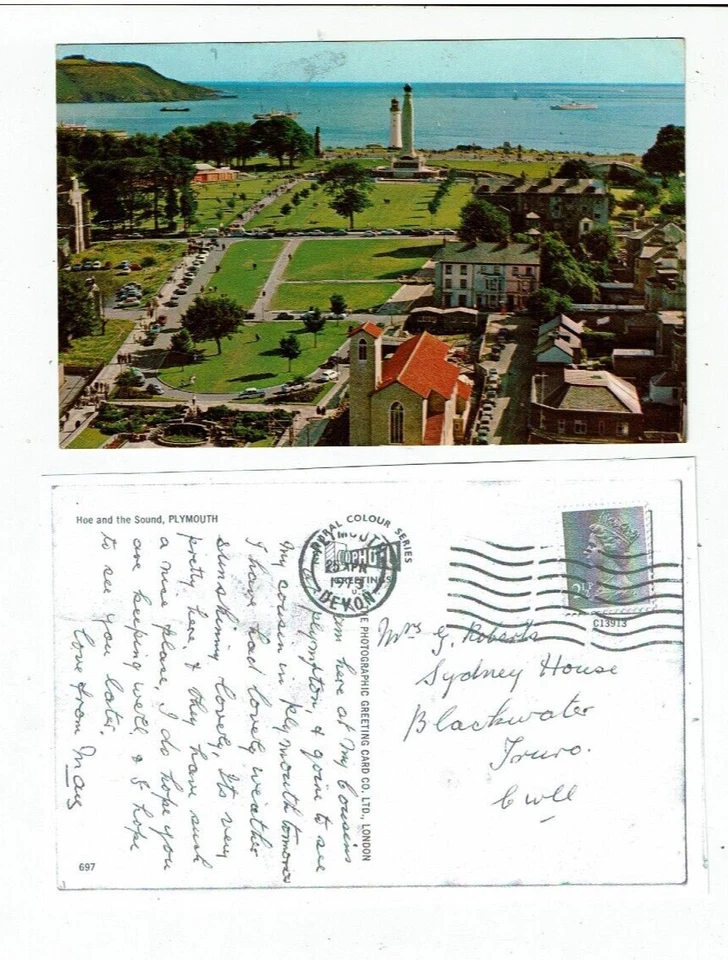 Hoe and the Sound, PLYMOUTH
NATURAL COLOUR SERIES
PHOTO
GREETINGS
PLYMOUTH
25 APR
1973
DEVON
2½
C13913
THE PHOTOGRAPHIC GREETING CARD CO. LTD., LONDON
697
am here at My Cousins
plympton, & going to see
My cousin in plymouth tomorrow
I have had lovely weather
sunshining lovely, Its very
pretty here, & they have such
a nice place, I do hope you
are keeping well & I hope
to see you later.
Love from May
Mrs G. Roberts
Sydney House
Blackwater
Truro.
Cwll